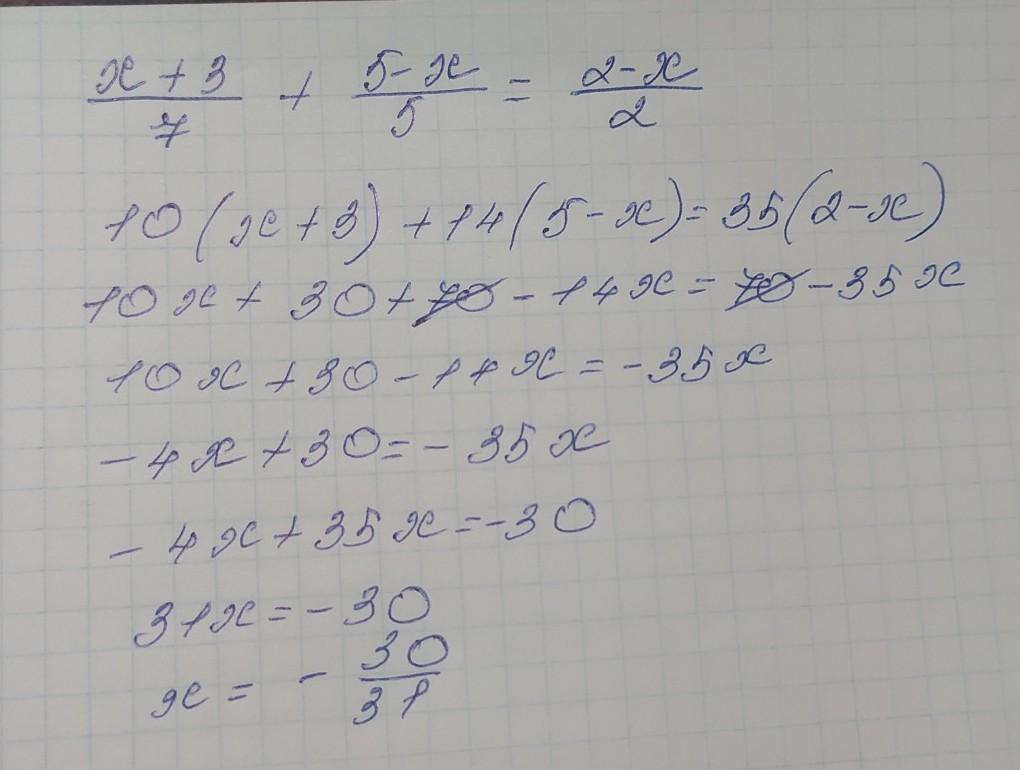 x + 3 / 7 + 5 - x / 5 = 2 - x / 2
10(x + 3) + 14(5 - x) = 35(2 - x)
10x + 30 + 70 - 14x = 70 - 35x
10x + 30 - 14x = -35x
-4x + 30 = -35x
-4x + 35x = -30
31x = -30
x = - 30 / 31